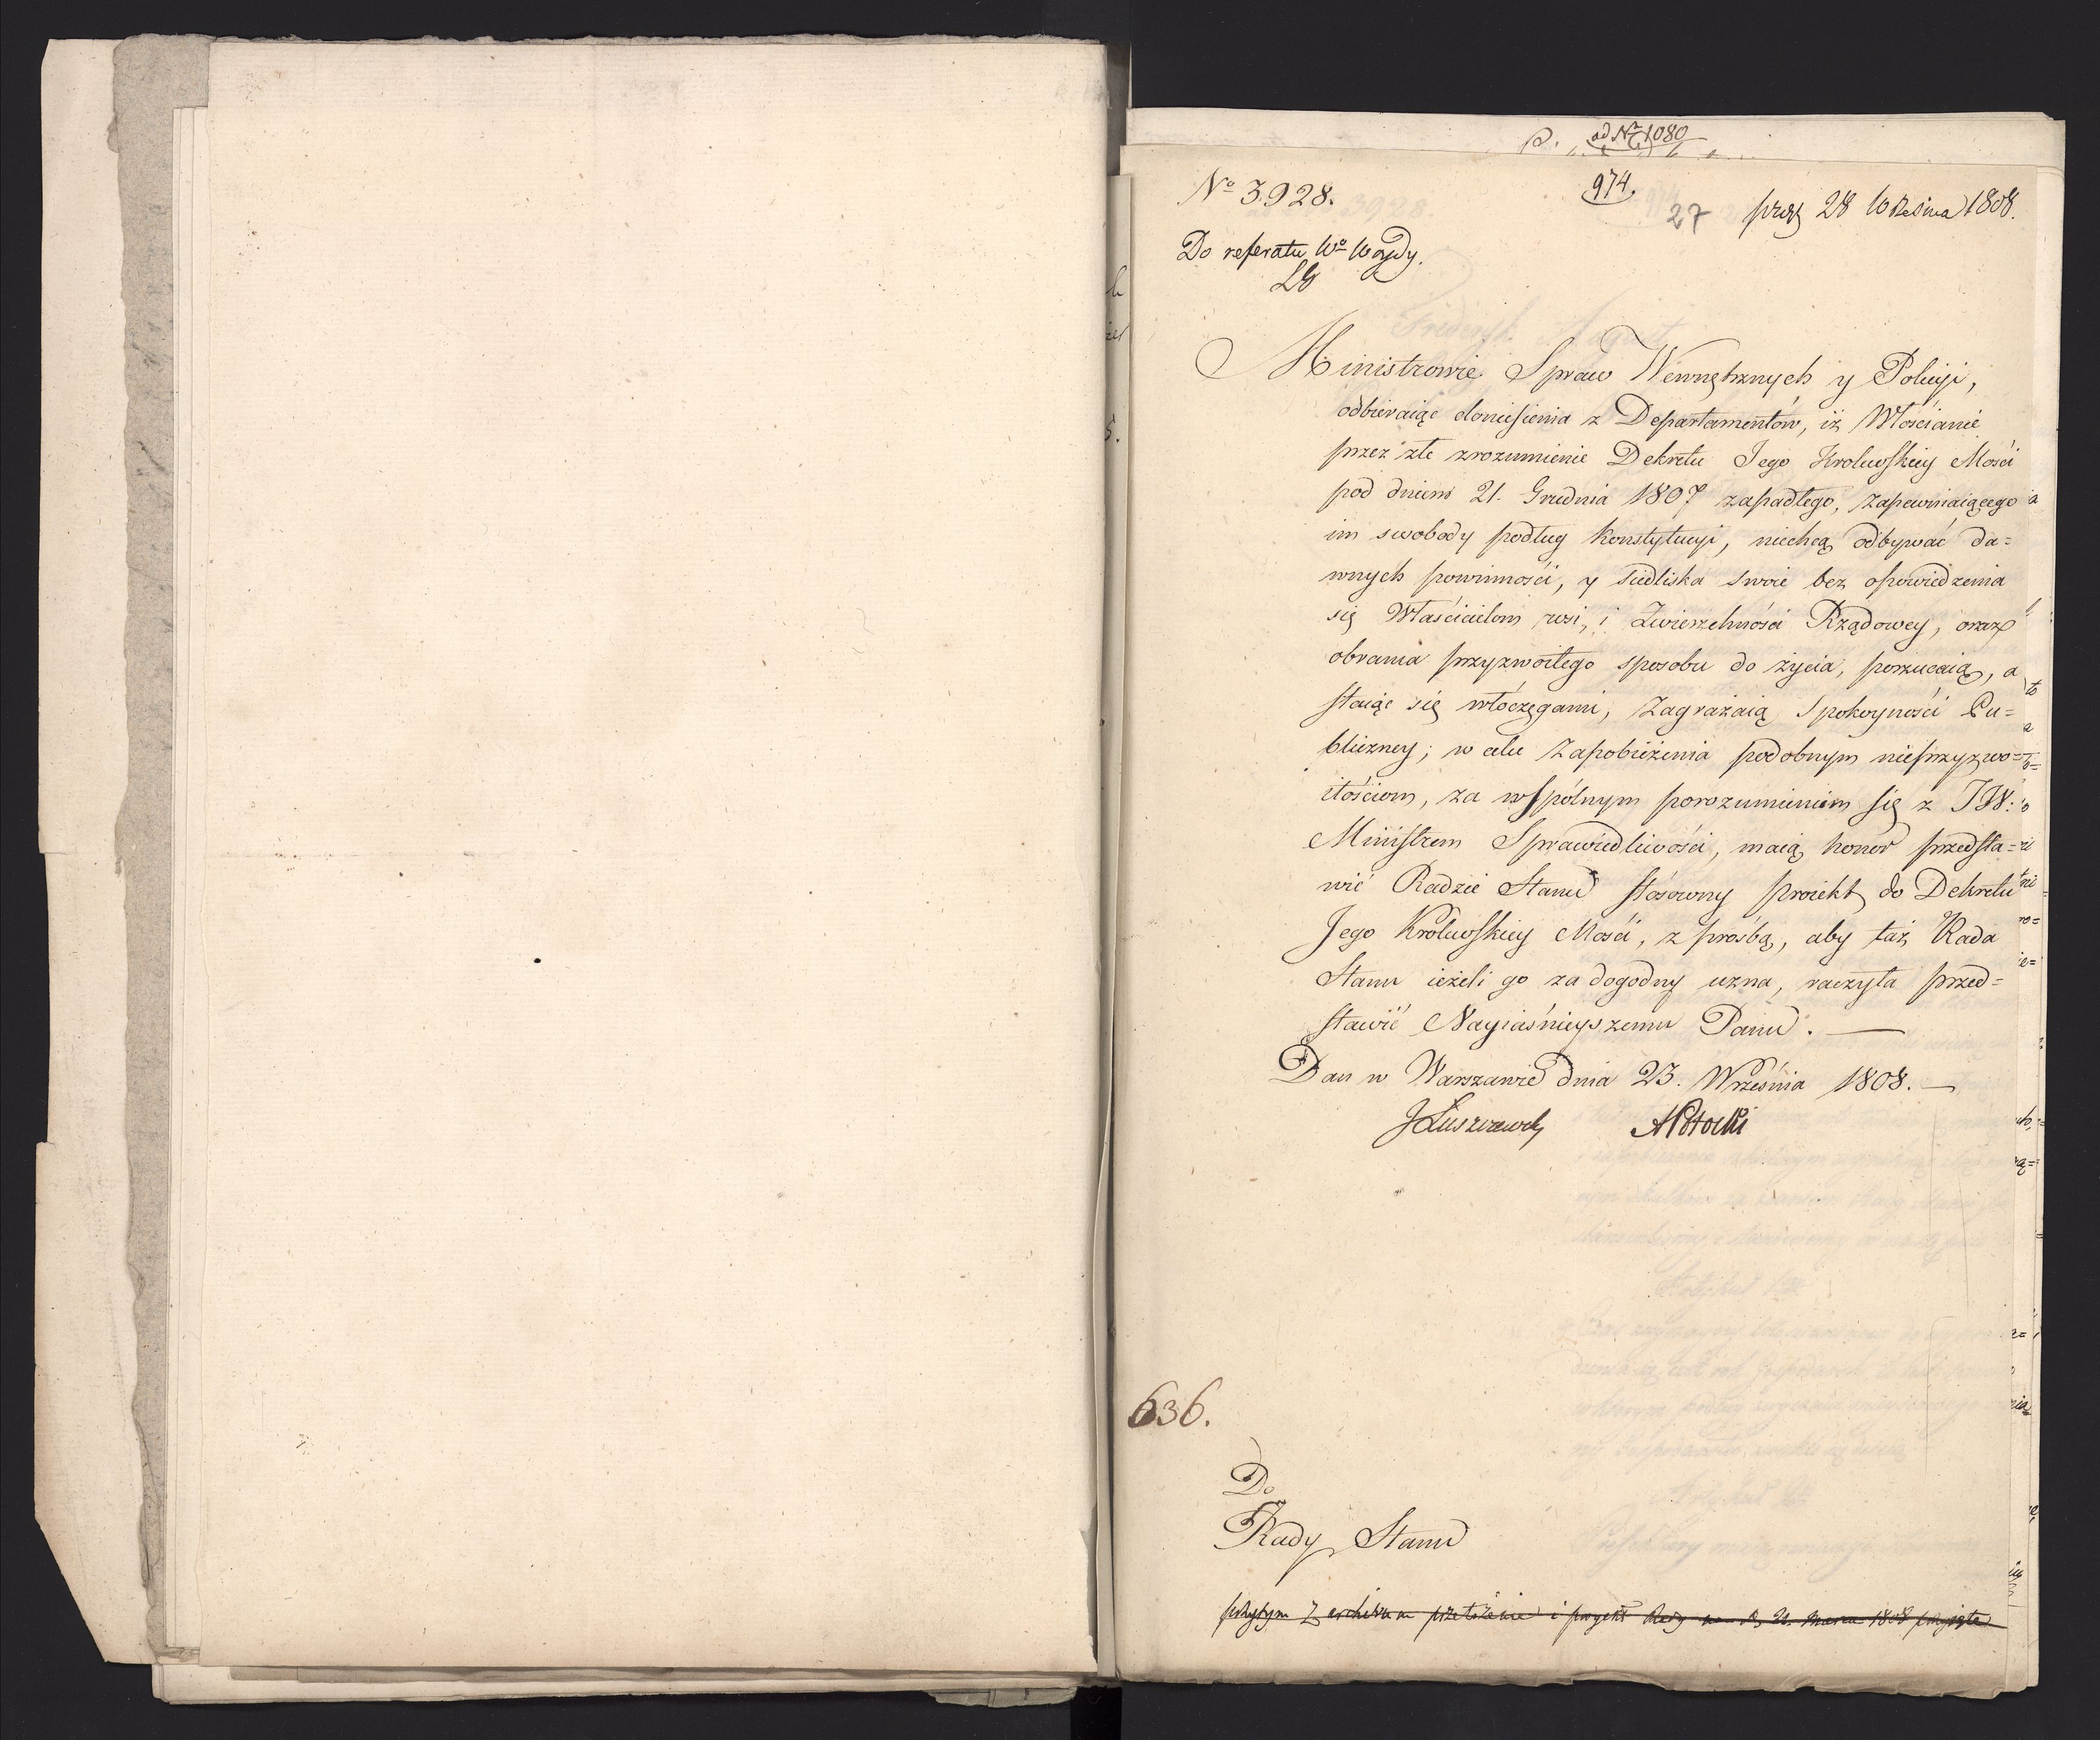 ad Nr 1080
974.
No 3928.
27 28 Września 1808.
Do referatu Wo Woydy.
Ministrowie Spraw Wewnętrznych y Policyi,
odbieraiąc doniesienia z Departamentów, iż Włościanie
przez złe zrozumienie Dekretu Jego Krolewskiey Mości
pod dniem 21. Grudnia 1807 zapadłego, zapewniaiącego
im swobody podług Konstytucyi, niechcą odbywać da=
wnych powinności, y siedliska swoie bez opowiedzenia
się Właścicielom wsi, i Zwierzchności Rządowey, oraz
obrania przyzwoitego sposobu do życia, porzucaią, a
staiąc się włóczęgami, zagrażaią Spokoyności Pu=
bliczney; w celu zapobieżenia podobnym nieprzyzwo=
itościom, za wspólnym porozumieniem się z JW:
Ministrem Sprawiedliwości, maią honor przedsta=
wić Radzie Stanu stósowny proiekt do Dekretu
Jego Krolewskiey Mości, z prośbą, aby taż Rada
Stanu ieżeli go za dogodny uzna, raczyła przed=
stawić Nayiaśnieyszemu Panu. —
Dan w Warszawie dnia 23. Września 1808. —
JŁuszczewsky APotocki
636.
Do
Rady Stanu
przytym z archiwum przełożenie i proyekt 21. Marca 1808